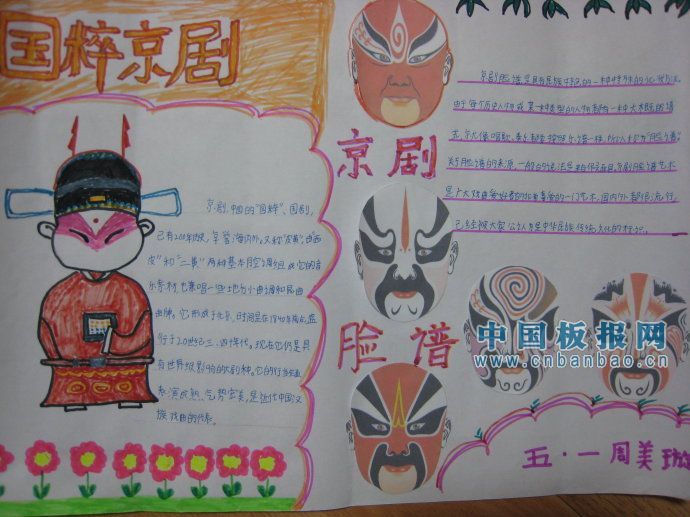 国粹京剧
京剧,中国的"国粹"、国剧,
已有200年历史,享誉海内外。又称"皮黄",由"西
皮"和"二黄"两种基本腔调组成它的音
乐素材,也兼唱一些地方小曲调和昆曲
曲牌。它形成于北京,时间是在1840年前后,盛
行于20世纪三、四十年代。现在它仍是具
有世界级影响的大剧种。它的行当全面、
表演成熟、气势宏美,是近代中国汉
族戏曲的代表。
京剧
脸谱
京剧脸谱是具有民族特色的一种特殊的化妆方法。
由于每个历史人物或某一种类型的人物都有一种大概的谱
式,就像唱歌、奏乐都要按照乐谱一样,所以称为"脸谱"。
关于脸谱的来源,一般的说法是
是广大戏曲爱好者的非常喜爱的一门艺术,国内外都很流行,
已经被大家公认为是中华民族传统文化的标识。
中国板报网
www.cnbanbao.cn
五·一周美璇